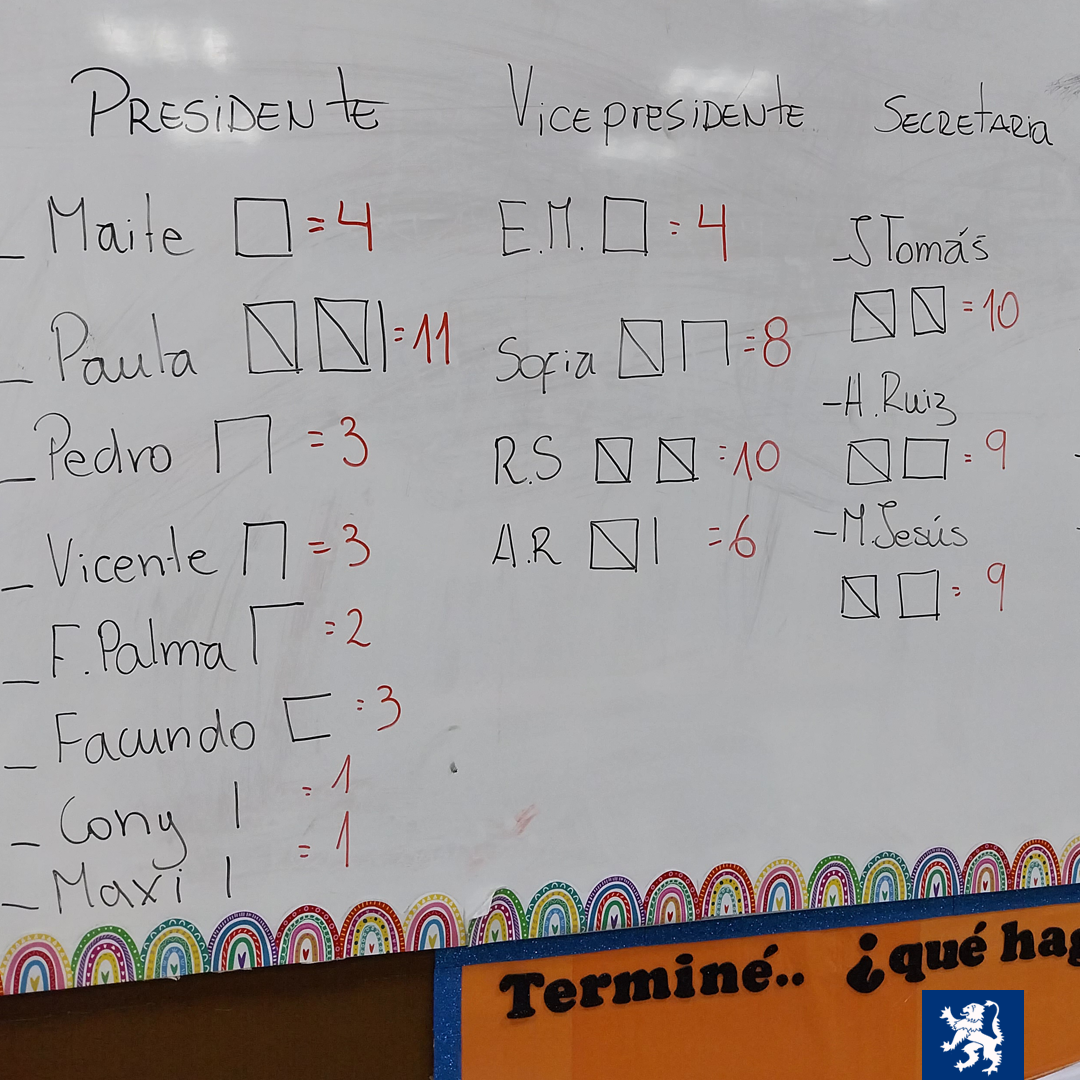 PRESIDENTE
_ Maite = 4
_ Paula = 11
_ Pedro = 3
_ Vicente = 3
_ F. Palma = 2
_ Facundo = 3
_ Cony = 1
_ Maxi = 1
Vicepresidente
E.M. = 4
Sofia = 8
R.S = 10
A.R = 6
SECRETARia
Tomás
= 10
- H. Ruiz
= 9
- M. Jesús
= 9
Terminé.. ¿qué hag